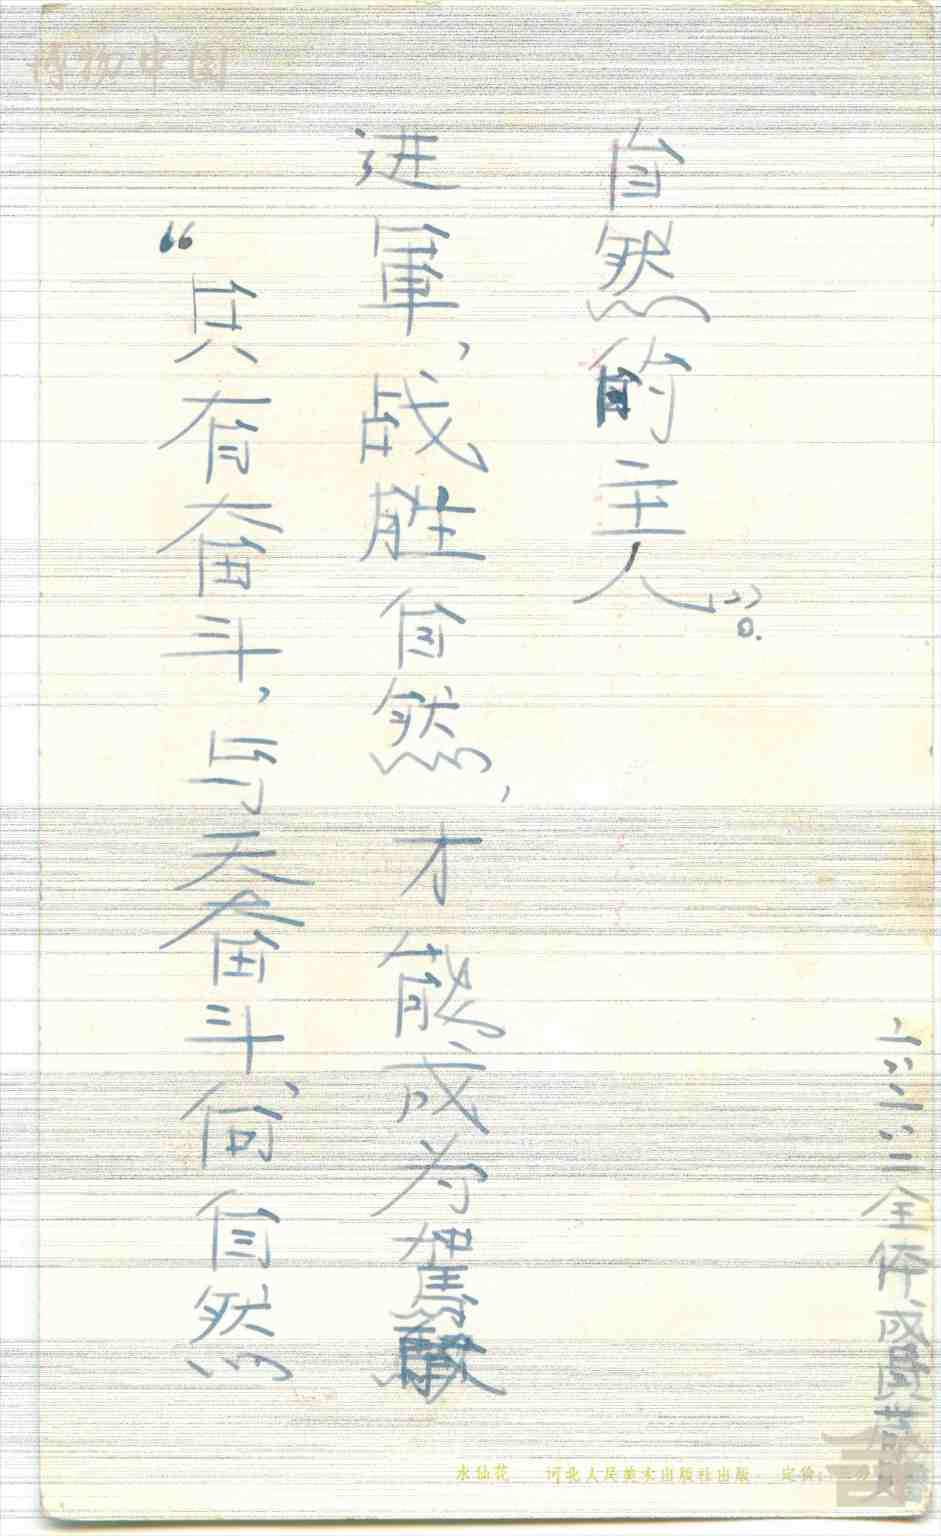 博物中国
“只有奋斗，与天奋斗，向自然
进軍，战胜自然，才能成为駕馭
自然的主人”。
全体成員
水仙花 河北人民美术出版社出版 定价：